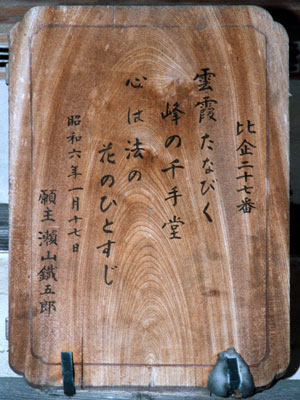 比企二十七番
雲霞たなびく
峰の千手堂
心は法の
花のひとすじ
昭和六年一月十七日
願主 瀬山鐵五郎